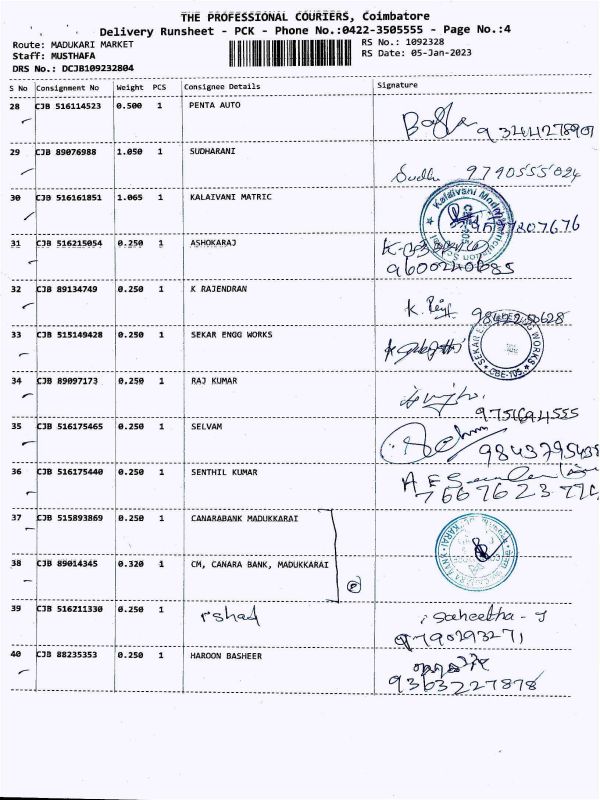 THE PROFESSIONAL COURIERS, Coimbatore
Delivery Runsheet - PCK - Phone No.:0422-3505555 - Page No.:4
Route: MADUKARI MARKET RS No.: 1092328
Staff: MUSTHAFA RS Date: 05-Jan-2023
DRS No.: DCJB109232804
S No Consignment No Weight PCS Consignee Details Signature
28 CJB 516114523 0.500 1 PENTA AUTO
29 CJB 89076988 1.050 1 SUDHARANI
Sudha 9790555024
30 CJB 516161851 1.065 1 KALAIVANI MATRIC
31 CJB 516215054 0.250 1 ASHOKARAJ
32 CJB 89134749 0.250 1 K RAJENDRAN
33 CJB 515149428 0.250 1 SEKAR ENGG WORKS
SEKAR ENGG WORKS
CBE-105.
34 CJB 89097173 0.250 1 RAJ KUMAR
9751694555
35 CJB 516175465 0.250 1 SELVAM
36 CJB 516175440 0.250 1 SENTHIL KUMAR
37 CJB 515893869 0.250 1 CANARABANK MADUKKARAI
38 CJB 89014345 0.320 1 CM, CANARA BANK, MADUKKARAI
39 CJB 516211330 0.250 1 rshad
9790293271
40 CJB 88235353 0.250 1 HAROON BASHEER
9363227878